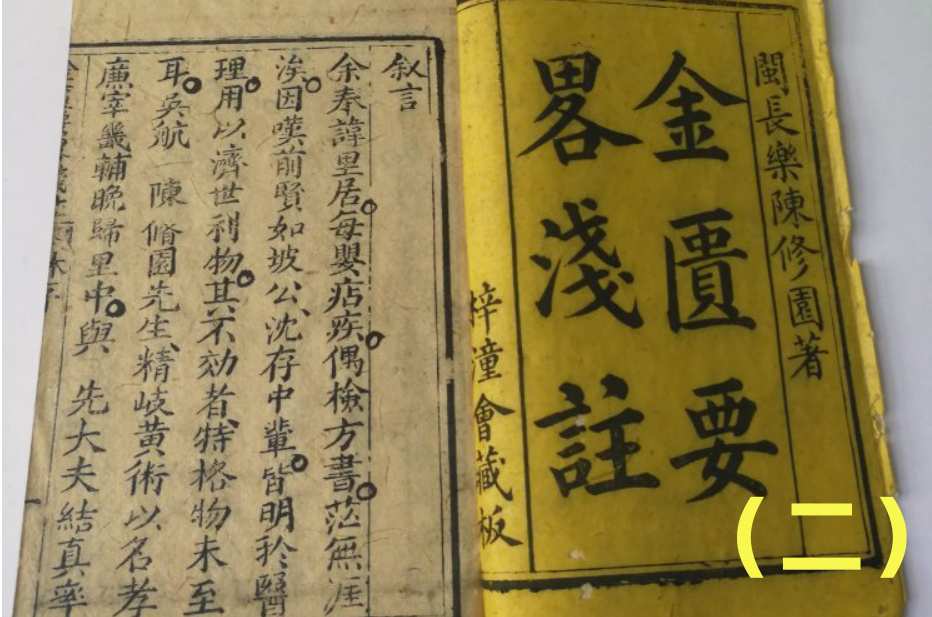 閩長樂陳修園著
金匱要
畧淺註
梓潼會藏板
叙言
余奉諱里居每嬰痁疾偶檢方書茫無涯
涘因嘆前賢如坡公沈存中輩皆明於醫
理用以濟世利物其不効者特格物未至
耳吳航 陳脩園先生精岐黃術以名孝
廉宰畿輔晚歸里中與 先大夫結真率
(二)